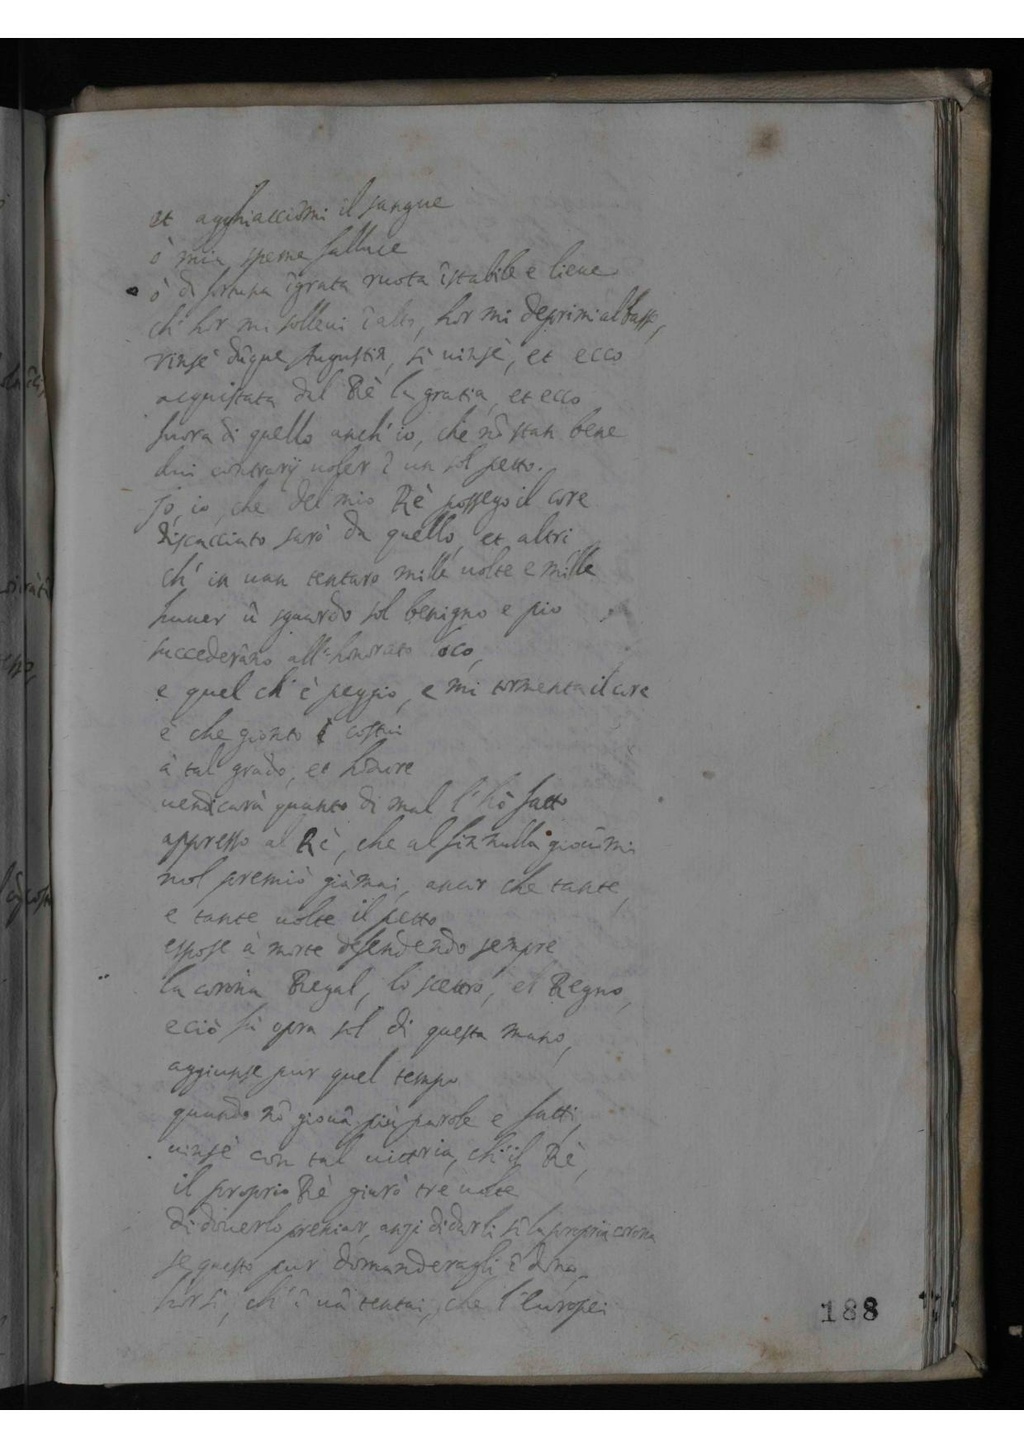 et agghiacciōmi il sangue
ò mia speme fallace
ò di fortuna īgrata ruota īstabile e lieue
ch' hor mi solleui ī alto, hor mi deprimi al basso,
vinse dūque Augustin, si uinse, et ecco
acquistata dal Rè la gratia, et ecco
fuora di quello anch' io, che nō stan bene
dui contrarij uoler ī un sol petto.
Io, io, che del mio Rè possego il core
discacciato sarò da quello, et altri
ch' in uan tentaro mille uolte e mille
hauer ū sguardo sol benigno e pio
succederāno all' honorato loco,
e quel ch' è peggio, e mi tormenta il core
è che gionto costui
à tal grado, et honore
uendicarà quanto di mal l' hò fatto
appresso al Rè, che al fin nulla
nol premiò giāmai, ancor che tante,
e tante uolte il petto
espose à morte defendēdo sempre
la corōna Regal, lo scettro, et Regno,
e ciò fù opra sol di questa mano,
aggiunse pur quel tempo
quando nō giouā più parole e fatti,
uinse con tal uictoria, ch' il Rè,
il proprio Rè giurò tre uolte
di douerlo premiar, anzi di darli la propria corona
se questo pur domanderagli ī dono,
hor sì, ch' ī uā tentai, che l' Europei
188